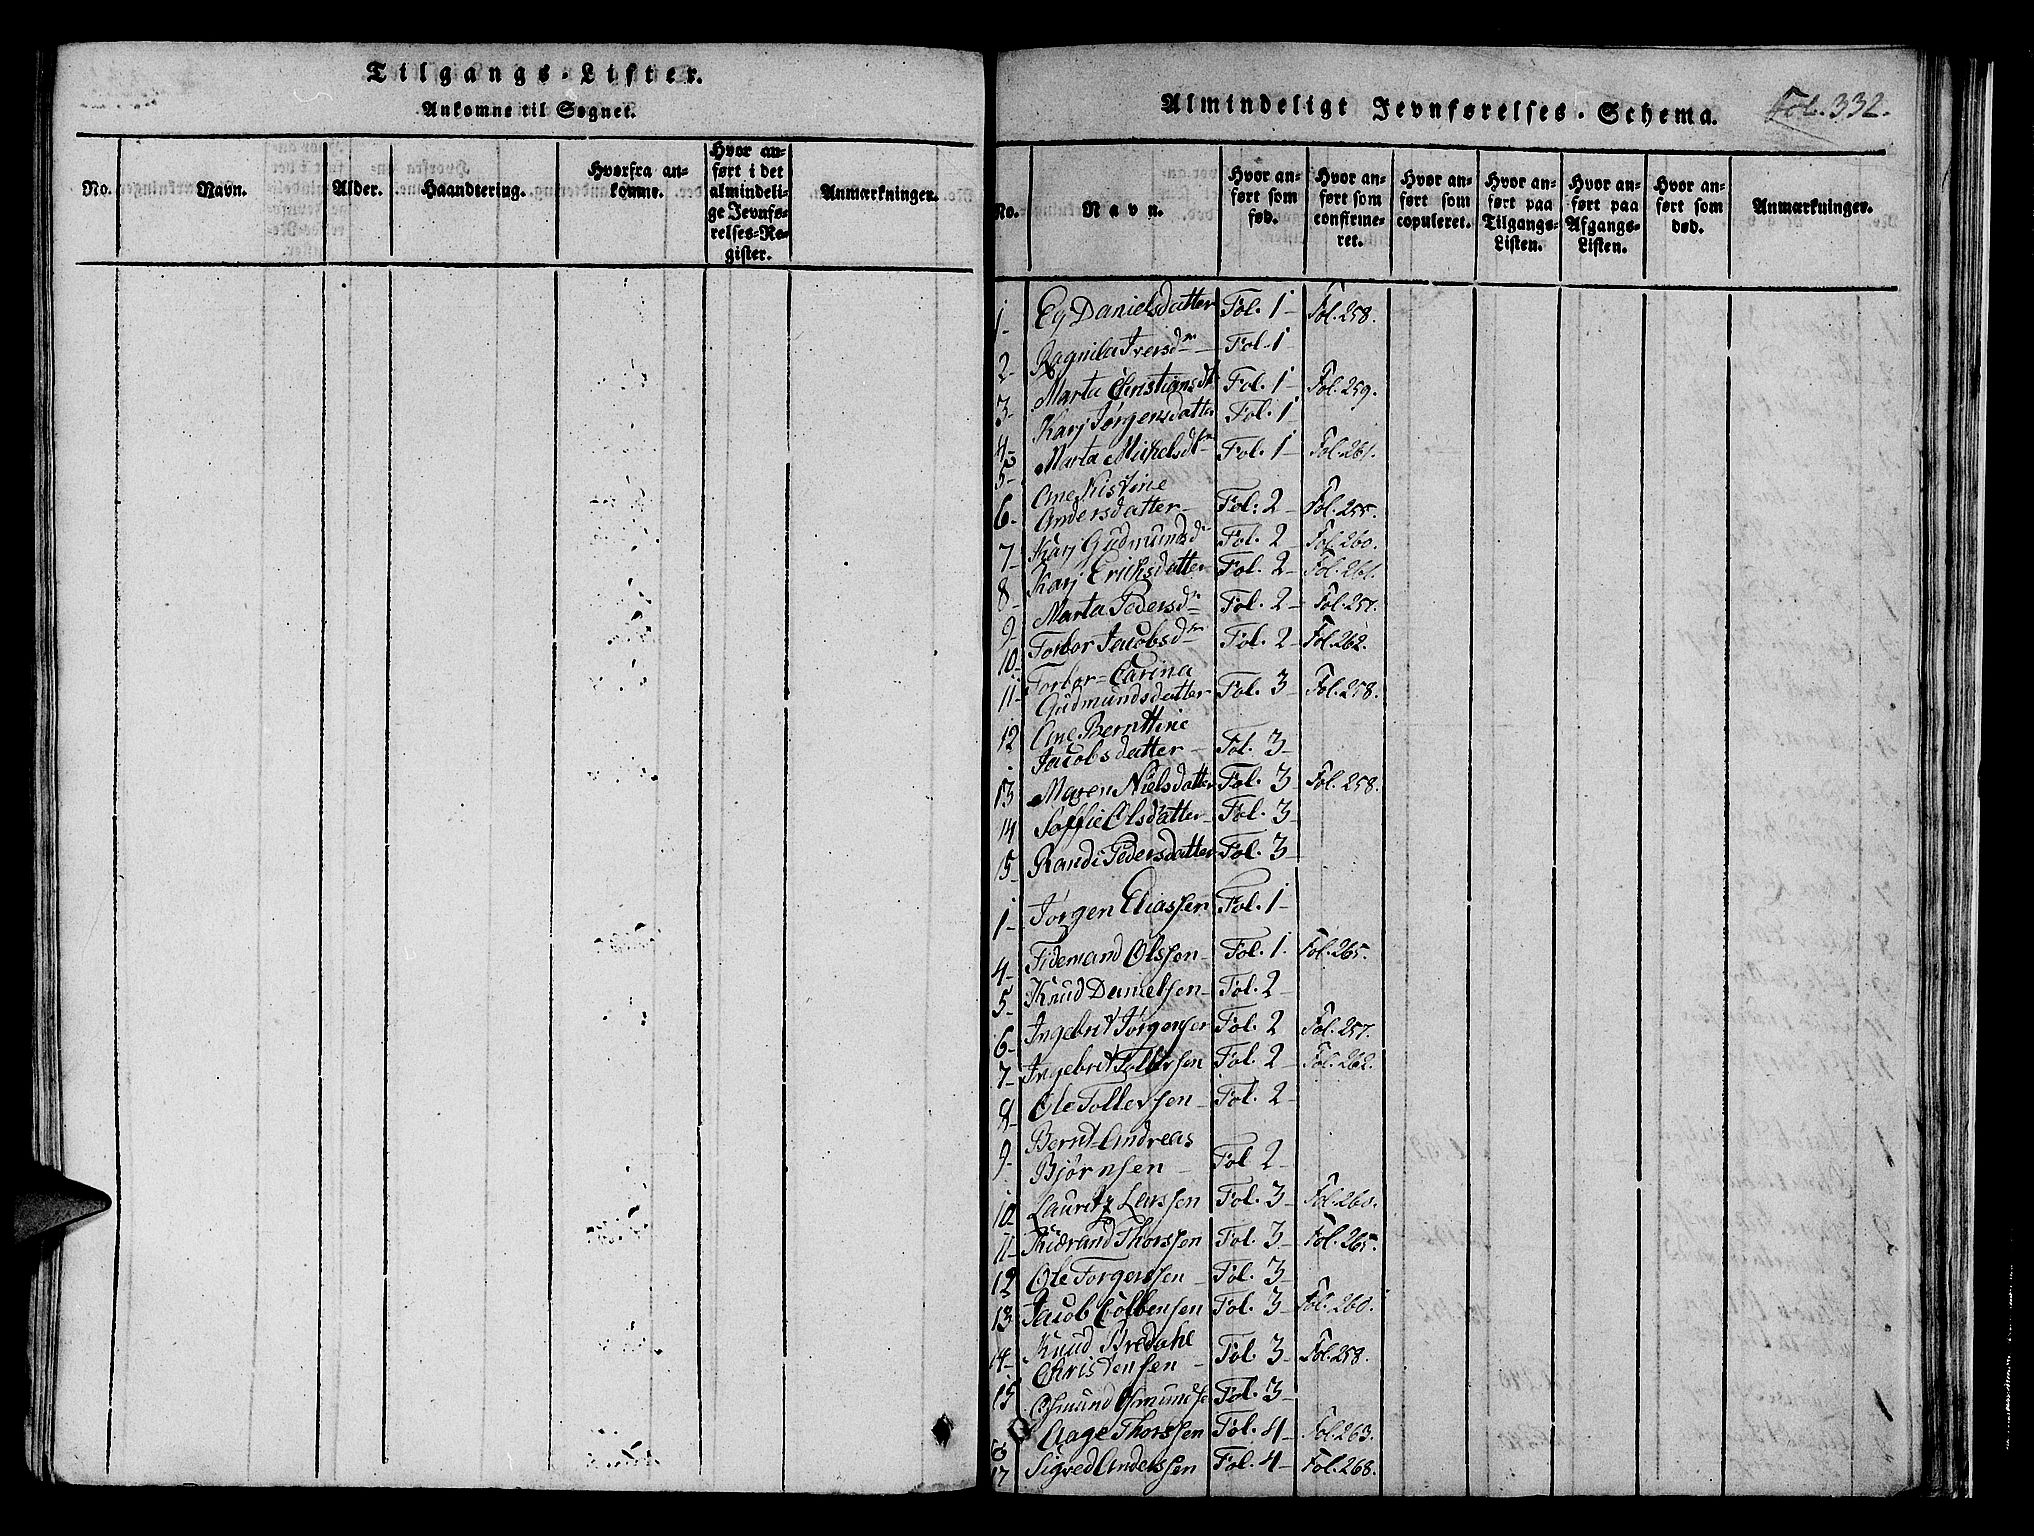 Tilgangs-Lister.
Ankomne til Sognet.
No.
Navn.
Alder.
Haandtering.
Hvorfra an-
komne.
Hvor an-
ført i det
almindeli-
ge Jevnfø-
relses-Re-
gister.
Anmærkninger.
Almindeligt Jevnførelses-Schema.
Fol. 332.
No.
Navn.
Hvor an-
ført som
fød.
Hvor an-
ført som
confirme-
ret.
Hvor an-
ført som
copuleret.
Hvor an-
ført paa
Tilgangs-
Listen.
Hvor an-
ført paa
Afgangs-
Listen.
Hvor an-
ført som
død.
Anmærkninger.
1- Eg Danielsdatter Fol. 1- Fol. 258.
2- Ragnila Iversdr Fol. 1-
3- Marta Christiansdt Fol. 1- Fol. 259.
4- Karj Jørgensdatter Fol. 1
5- Marta Mikelsdtr Fol. 1- Fol. 261.
Ane Kistine
6- Andersdatter- Fol: 2- Fol. 255.
7- Karj Gudmundsdr Fol. 2- Fol. 260.
8- Karj Eriksdatter Fol. 2- Fol. 261.
9- Marta Pedersdr Fol. 2- Fol. 257.
10- Torbor Jacobsdtr Fol. 2- Fol. 262.
Torbor-Carina
11- Gudmundsdatter- Fol. 3- Fol. 258.
12 Ane Bernttine
Jacobsdatter- Fol. 3-
13 Maren Nielsdatter Fol. 3- Fol. 258.
14 Soffie Olsdatter- Fol. 3-
15- Randi Pedersdatter Fol. 3-
1- Jørgen Eliassen Fol. 1-
4- Tidemand Olssen- Fol. 1. Fol. 265.
5- Knud Danielsen- Fol. 2-
6- Ingebrit Jørgensen Fol. 2 Fol. 257.
7- Ingebrit Tollefsen Fol. 2- Fol. 262.
8- Ole Tollevsen- Fol. 2-
9- Bernt-Andreas
Bjørnsen- Fol 2-
10 Lauritz Larssen Fol. 3- Fol. 260.
11- Kidrand Thorssen Fol. 3- Fol. 265.
12 Ole Torgerssen- Fol. 3-
13 Jacob Colbensen Fol. 3- Fol. 260.
14- Knud Bredahl
Christensen- Fol. 3- Fol. 258.
15 Osmund Osmundse Fol. 3-
16 Aage Thorssen Fol. 4- Fol. 263.
17 Sigved Anderssen Fol. 4- Fol. 268.